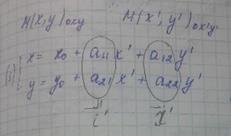 M(x,y)oxy M(x',y')o'x'y'
(1) { x = x₀ + a₁₁ x' + a₁₂ y'
y = y₀ + a₂₁ x' + a₂₂ y'
i' j'